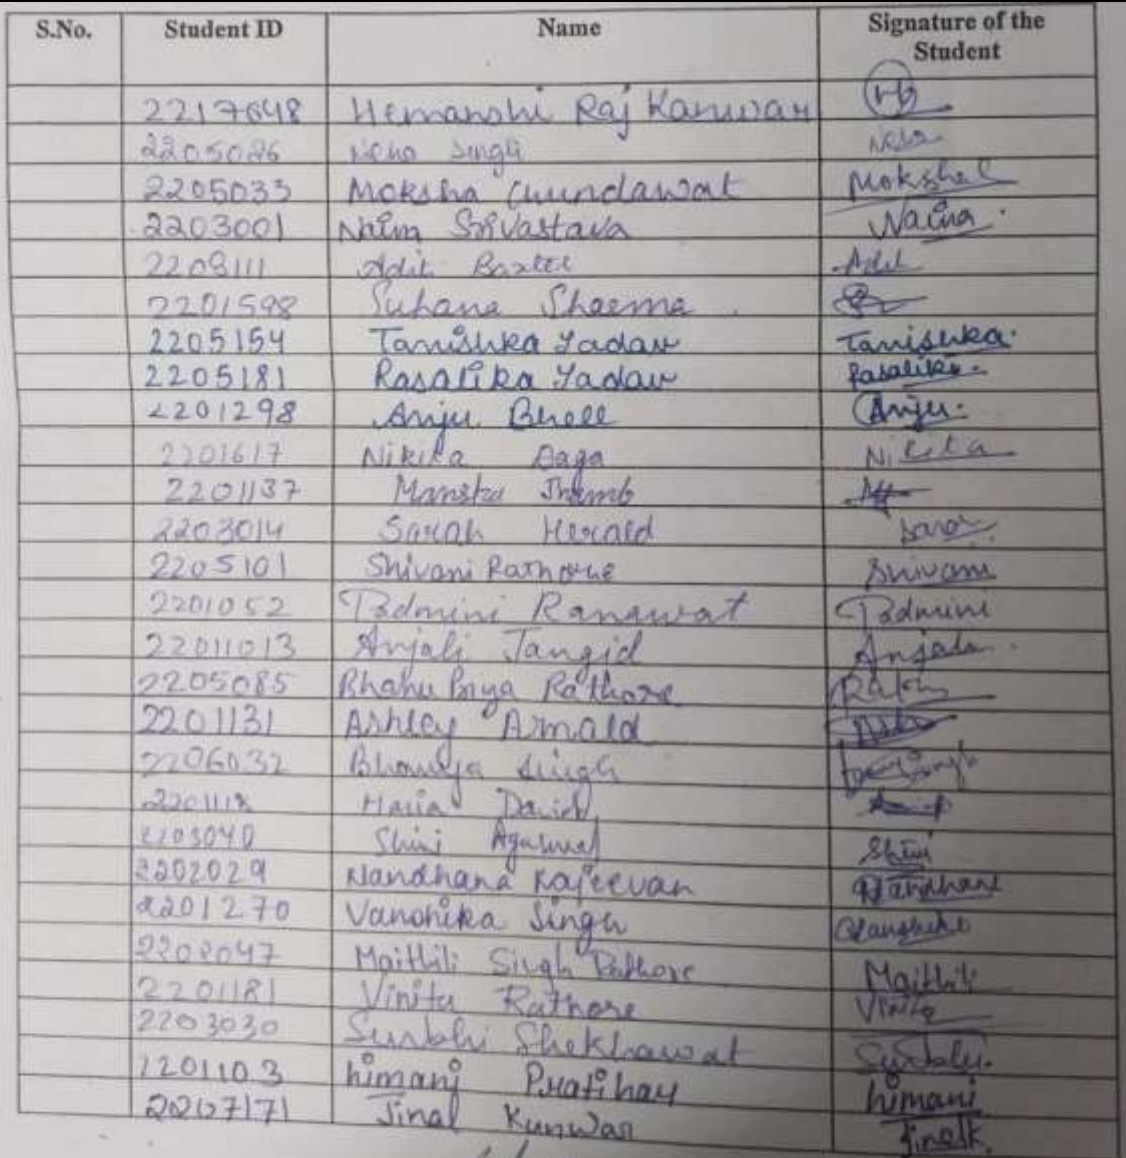 S.No. Student ID Name Signature of the Student
2217648 Hemanshi Raj Kanwar
2205026 Neha Singh Neha
2205033 Moksha Chundawat Moksha
2203001 Naina Srivastava Naina
2208111 Adit
2201598 Suhana Sharma
2205154 Tanishka Yadav Tanishka
2205181 Rasalika Yadav Rasalika
2201298 Anju Anju
2201617 Nikita Daga Nikita
2201137
2203014 Sarah Herald Sarah
2205101 Shivani Rathore Shivani
2201052 Padmini Ranawat Padmini
22011013 Anjali Jangid Anjali
2205085 Bhanu Priya Rathore
2201131 Ashley Arnald
2206032 Singh
2201118 Maria David
2203040 Shini Agarwal Shini
2202029 Nandhana Rajeevan Nandhana
2201270 Vanshika Singh Vanshika
2202047 Maithili Singh Rathore Maithili
2201181 Vinita Rathore Vinita
2203030 Surbhi Shekhawat Surbhi
2201103 himani Pratihar himani
2207171 Jinal Kunwar Jinalk